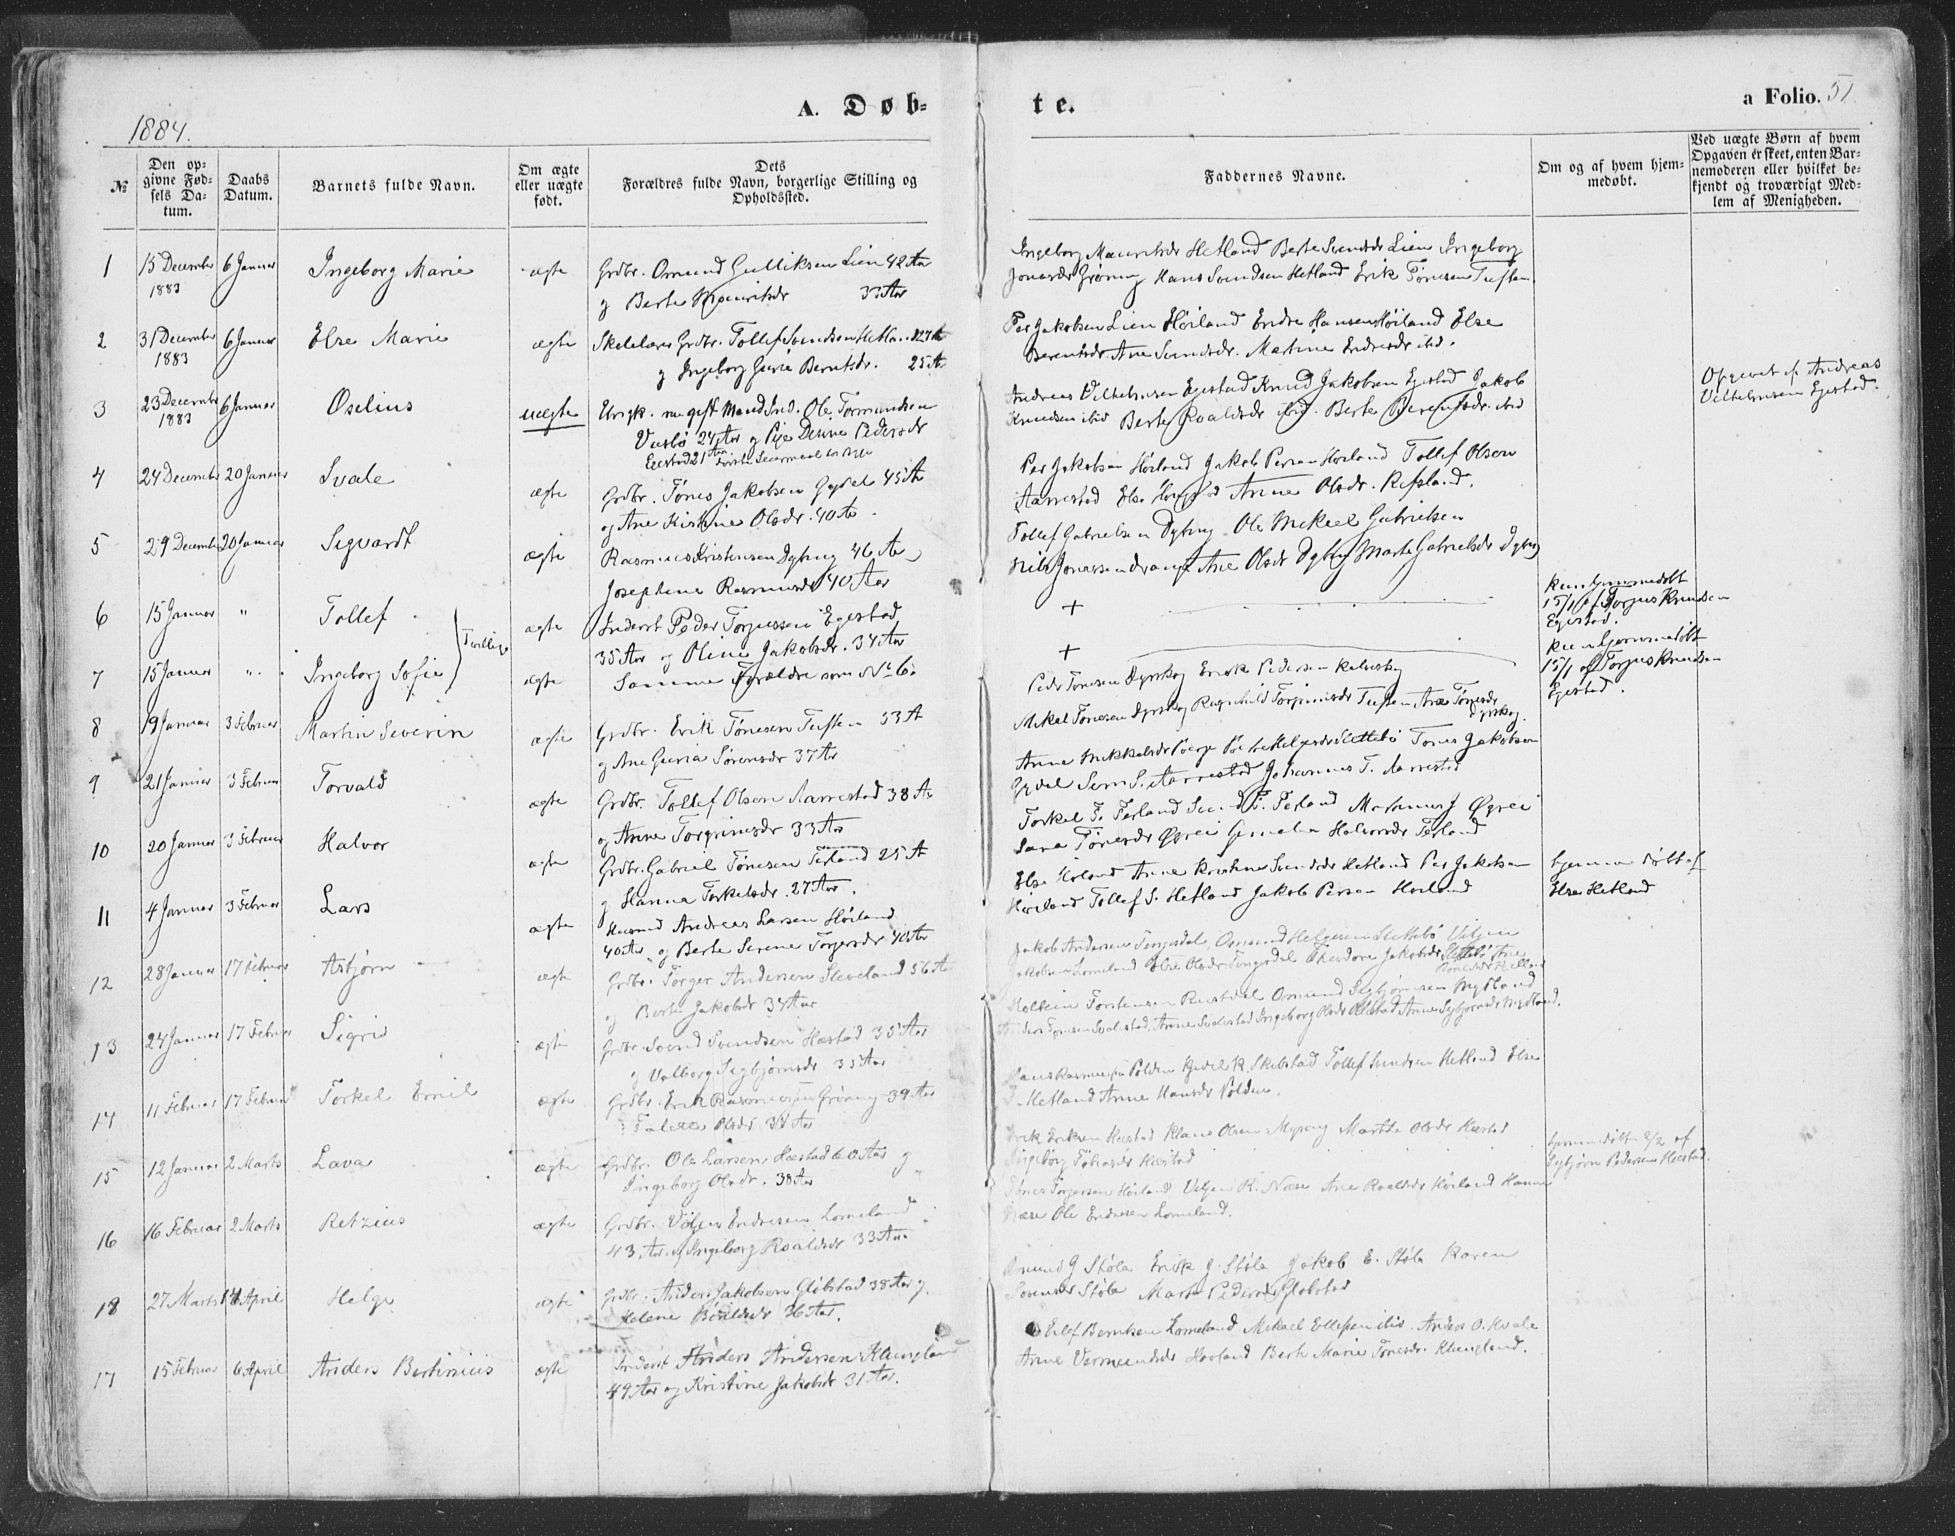 1884.
A. Døb-
te.
a Folio. 51.
№
Den op-
givne Fød-
sels Da-
tum.
Daabs
Datum.
Barnets fulde Navn.
Om ægte
eller uægte
født.
Dets
Forældres fulde Navn, borgerlige Stilling og
Opholdssted.
Faddernes Navne.
Om og af hvem hjem-
medøbt.
Ved uægte Børn af hvem
Opgaven er skeet, enten Bar-
nemoderen eller hvilket be-
kjendt og troværdigt Med-
lem af Menigheden.
1 15 December 6 Januar Ingeborg Marie ægte Grdbr. Omund Gulliksen Lien 42 Aar
1883
og Berte Mauritsdr 33 Aar
Ingeborg Mauritsdr Hetland Berte Svendsdr Lien Ingeborg
Jonasdr Grøning Hans Svendsen Hetland Erik Tønesen Tuften
2 31 December 6 Januar Else Marie ægte Skolelærer Grdbr. Tollef Svendsen Hetland 27 A
1883
og Ingeborg Guria Berntsdr. 25 A
Per Jakobsen Lien Høiland Endre Hansen Høiland Else
Berentsdr. Ane Svendsdr. Martine Endresdr ibid.
3 23 December 6 Januar Oselius uægte Ungk. Ole Tormundsen
1883
24 Aar og Pige Pedersdr
Egestad 21 Aar
Andreas Vilhelmsen Egestad Knud Jakobsen Egestad Jakob
Knudsen ibid Berte Roaldsdr ibid. Berte Berentsdr. ibid
Opgivet af Andreas
Vilhelmsen Egestad.
4 24 December 20 Januar Svale ægte Grdbr. Tønes Jakobsen Gydel 45 A
og Ane Kistine Olsdr. 40 Aar.
Per Jakobsen Høiland Jakob Persen Høiland Tollef Olsen
Aarrestad Else Anne Olsdr. Refsland.
5 29 December 20 Januar Sigvardt ægte Rasmus Kristensen Dybing 46 Aar
Josephine Rasmusdr 40 Aar
Tollef Gabrielsen Dybing Ole Mikael Gabrielsen
Nils Jonassen Ane Olsdr Dybing Marte Gabrielsdr Dybing
6 15 Januar " Tollef Tvillinge ægte Inderst Peder Torjussen Egestad
35 Aar og Oline Jakobsdr. 34 Aar
+
kun hjemmedøbt
15/1 af Torjus Knudsen
Egestad.
7 15 Januar " Ingeborg Sofie ægte Samme Forældre som No 6.
+
kun hjemmedøbt
15/1 af Torjus Knudsen
Egestad.
8 19 Januar 3 Februar Martin Severin ægte Grdbr. Erik Tønesen Tuften 33 A
og Ane Guria Sørensdr 37 Aar
Peder Tønesen Dyrskog Enok Pedersen
Mikal Tønesen Dyrskog Ragnhild Torgrimsdr Tuften Ane Tønesdr
Dyrskog.
9 21 Januar 3 Februar Torvald ægte Grdbr. Tollef Olsen Aarrestad 38 A.
og Anne Torgrimsdr 33 Aar
Anne Mikkelsdr Helgesdr Slettebø Tønes Jakobsen
Gydel S. Aarrestad Johannes T. Aarrestad
10 20 Januar 3 Februar Halvor ægte Grdbr. Gabriel Tønesen Terland 25 A
og Hanna Torkelsdr. 27 Aar.
Torkel T. Terland Svend T. Terland J Øgrei
Sara Tønesdr Øgrei Halvorsdr Terland
11 4 Januar 3 Februar Lars ægte Husmd Andreas Larsen Høiland
40 Aar og Berte Serine Torgersdr 40 Aar
Else Høiland Anne Kristine Svendsdr Hetland Per Jakobsen
Høiland Tollef S. Hetland Jakob Persen Høiland
hjemmedøbt af
Else Hetland
12 28 Januar 17 Februar Asbjørn ægte Grdbr. Torger Andersen Sleveland 56 Aar
og Berte Jakobsdr 34 Aar
Jakob Andersen Tengesdal, Omund Helgesen Slettebø Viljen
Jakobsen Lomeland Else Olsdr Tengsdal Theodore Jakobsdr Slettebø Ane
13 24 Januar 17 Februar Sigrid ægte Grdbr. Svend Svendsen Hæstad 35 Aar
og Valborg Sigbjørnsdr 35 Aar
Torstensen Omund Sigbjørnsen Mydland
Anders Tønesen Svalestad, Anne Svalestad Ingeborg Anne Sigbjørnsdr Mydland.
14 11 Februar 17 Februar Torkel Emil ægte Grdbr. Erik Rasmussen Grøning 39 Aar
Olsdr. 38 Aar
Hans Rasmussen Polden Kjedel R. Skibstad Tollef Svendsen Hetland Else
Hetland Anne Hansdr Polden.
15 12 Januar 2 Marts Lava ægte Grdbr. Ole Larsen Hæstad 60 Aar og
Ingeborg Olsdr. 38 Aar
Erik Eriksen Hæstad Klaus Olsen Martha Olsdr Hæstad
Ingeborg Tobiasdr Hæstad
hjemmedøbt 2/2 af
Sigbjørn Pedersen Hæstad.
16 16 Februar 2 Marts Retzius ægte Grdbr. Viljen Endresen Lomeland
43 Aar og Ingeborg Roaldsdr 33 Aar.
Tønes Torgersen Høiland Viljen R. Næse Ane Roaldsdr Høiland Hanne
Næse Ole Endresen Lomeland.
18 27 Marts 14 April Helge ægte Grdbr. Anders Jakobsen Gløbstad 38 Aar og
Helene Roaldsdr 36 Aar.
Omund J Støle Erik J. Støle Jakob E. Støle Karen
Sørensdr Støle Marte Pedersdr Gløbstad
17 15 Februar 6 April Anders Bertinius ægte Inderst Anders Andersen Klungland
49 Aar og Kristine Jakobsdr 31 Aar.
Eilef Berntsen Lomeland Mikael Ellefsen ibid. Anders O. Kvale
Anne Vermundsdr Hovland Berte Marie Tønesdr. Klungland.